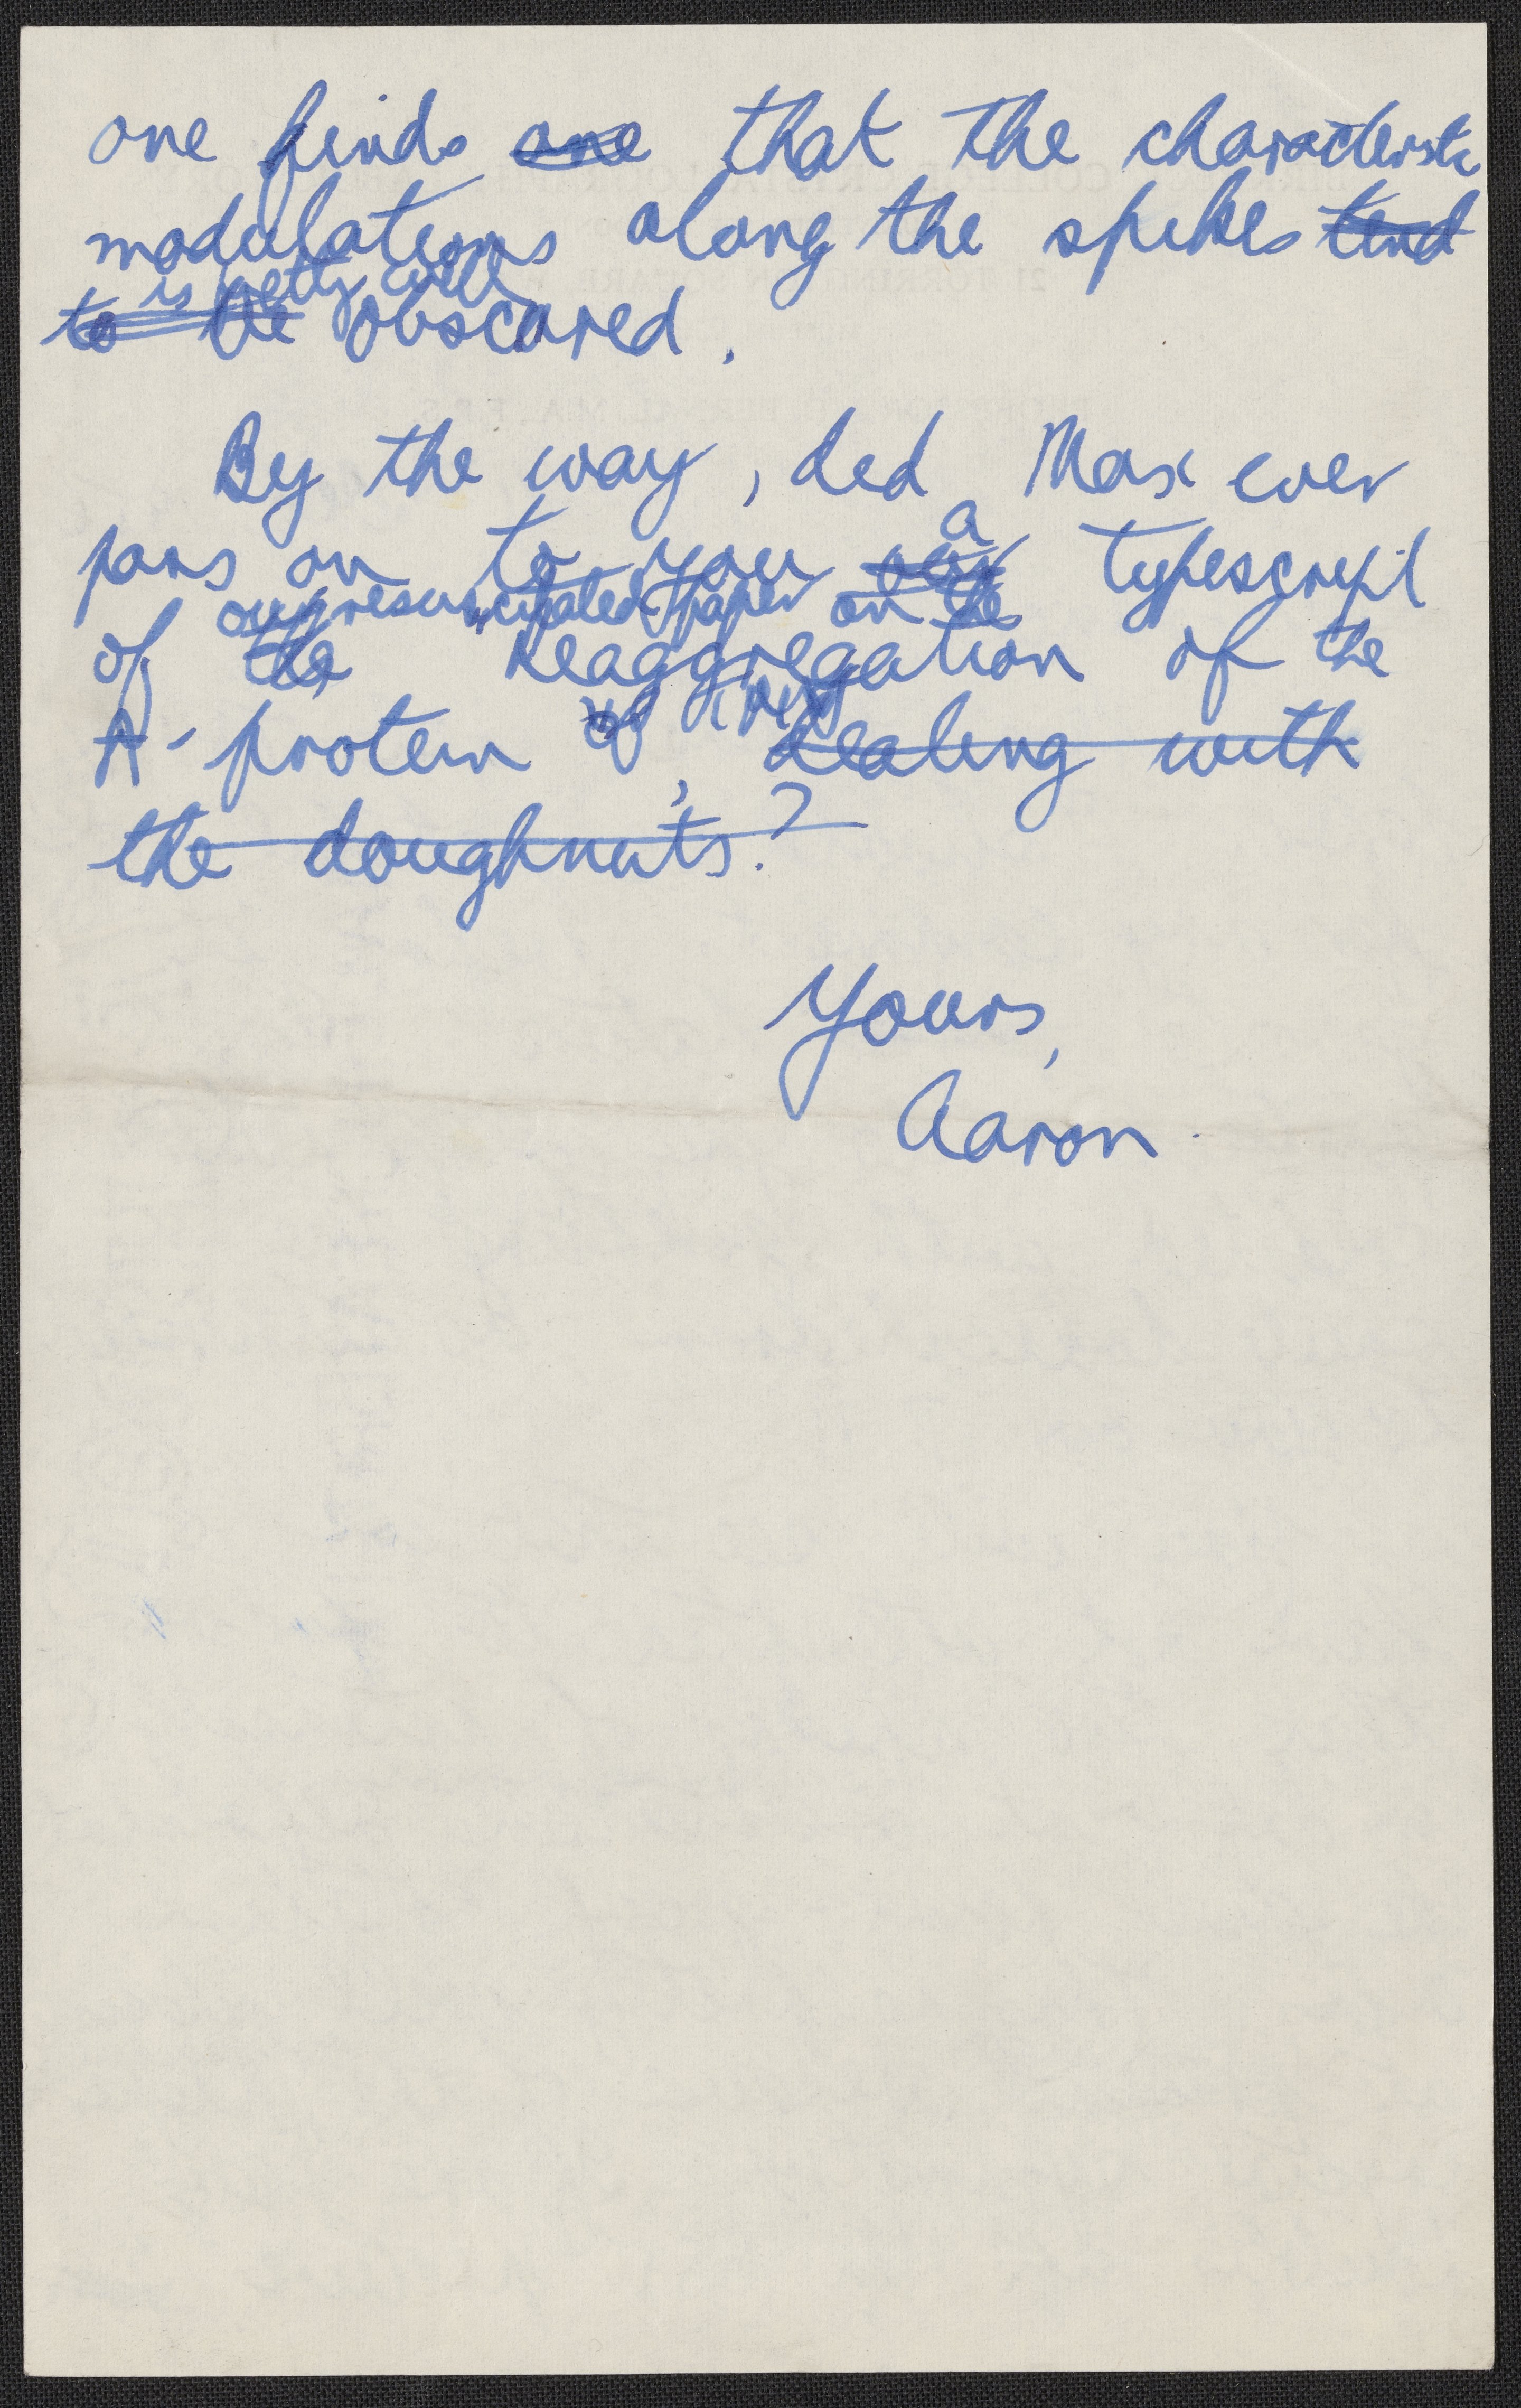 one finds one that the characteristic
modulations along the spikes tend
is pretty well
to be obscured.
By the way, did Max ever
a
pass on to you typescript
our resuscitated paper on the
of the Reaggregation of the
A-protein of dealing with
the doughnuts?
Yours,
Aaron.